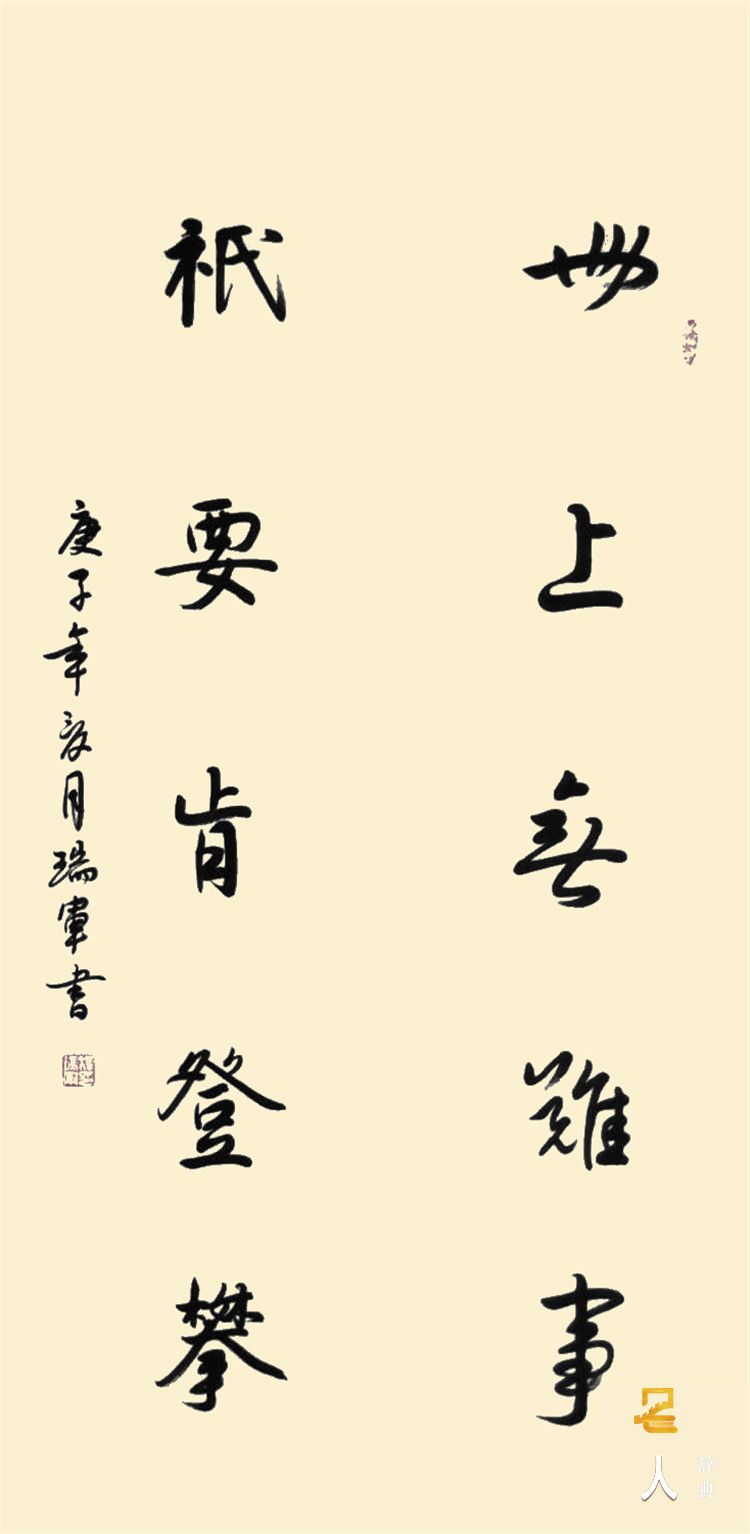 世上無難事
祇要肯登攀
庚子年夏月瑞軍書
人
辞典